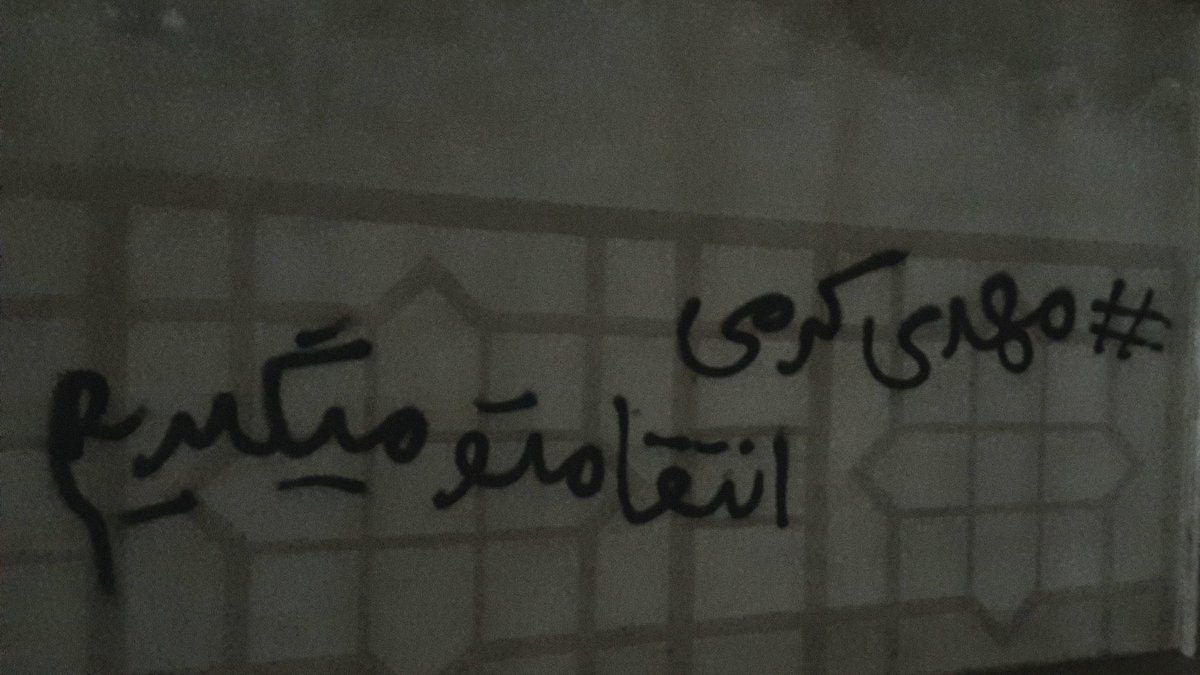 #مهدی کرمی
انتقامتو میگیریم